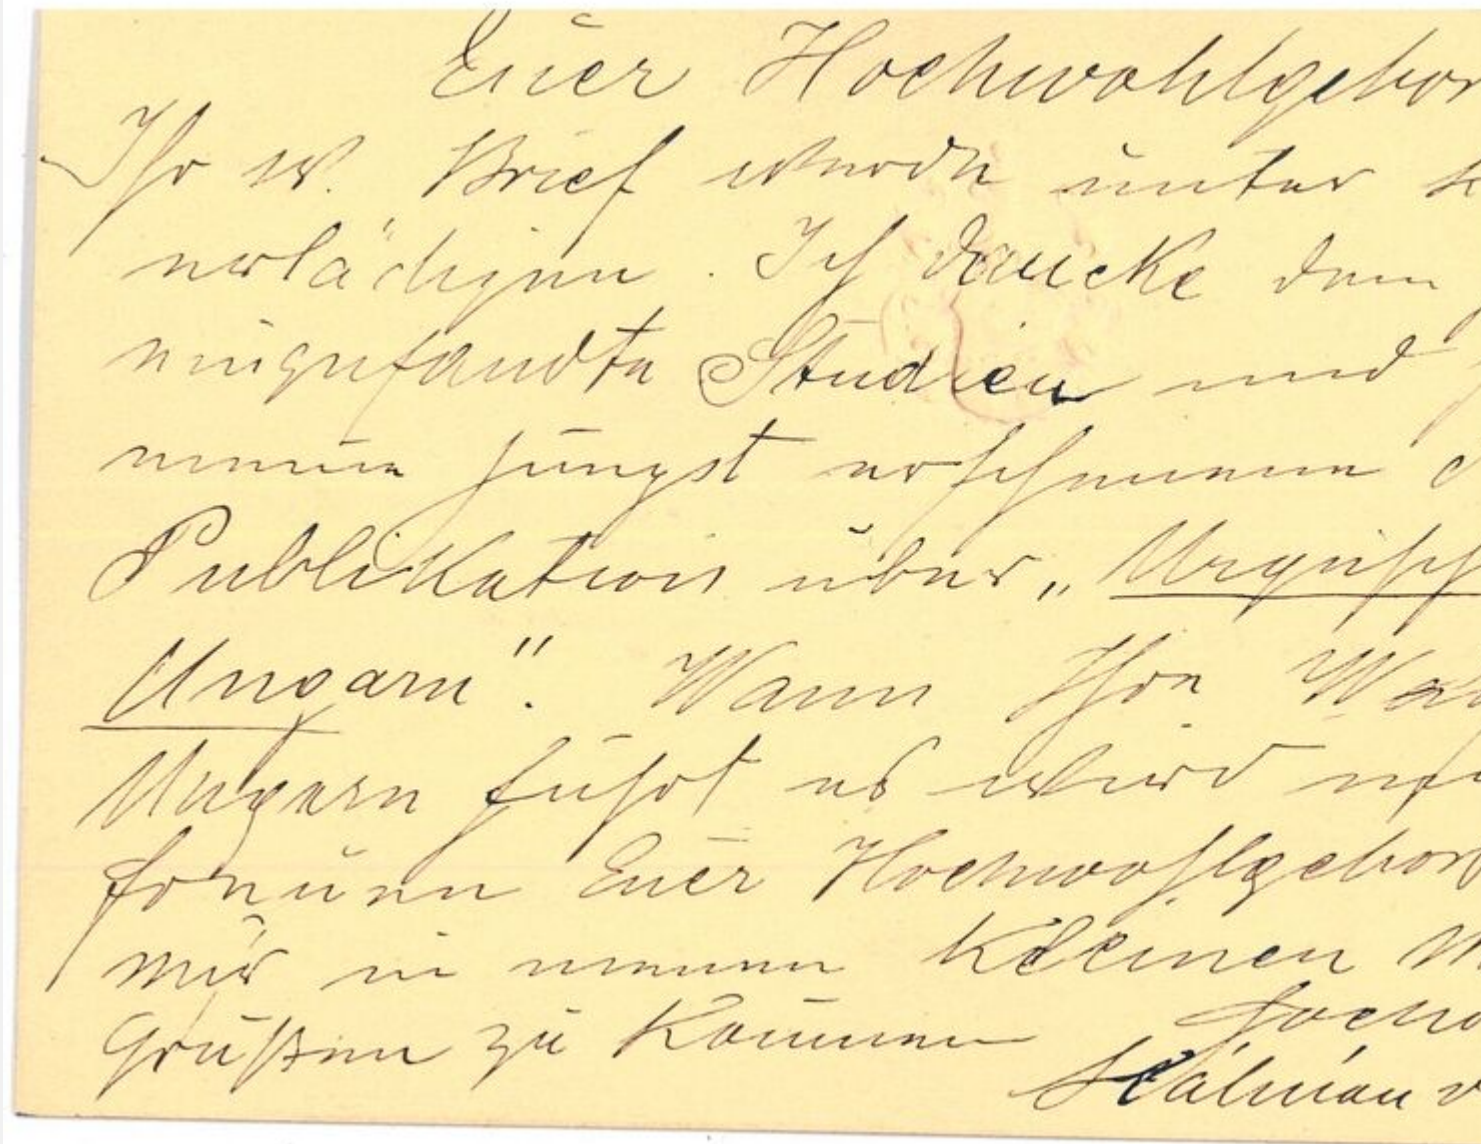 Euer Hochwohlgebor
Ihr w. Brief wurde unter
erlädigen. Ich dancke dem
eingesandte Studien und
meine jüngst erschienene
Publikation über „Urgesch
Ungarn“. Wann Ihre Weg
Ungarn führt es wird mi
freuen Euer Hochwohlgebor
mir in meinen Kleinen M
Grüßen zu Können Hocha
Kálmán v